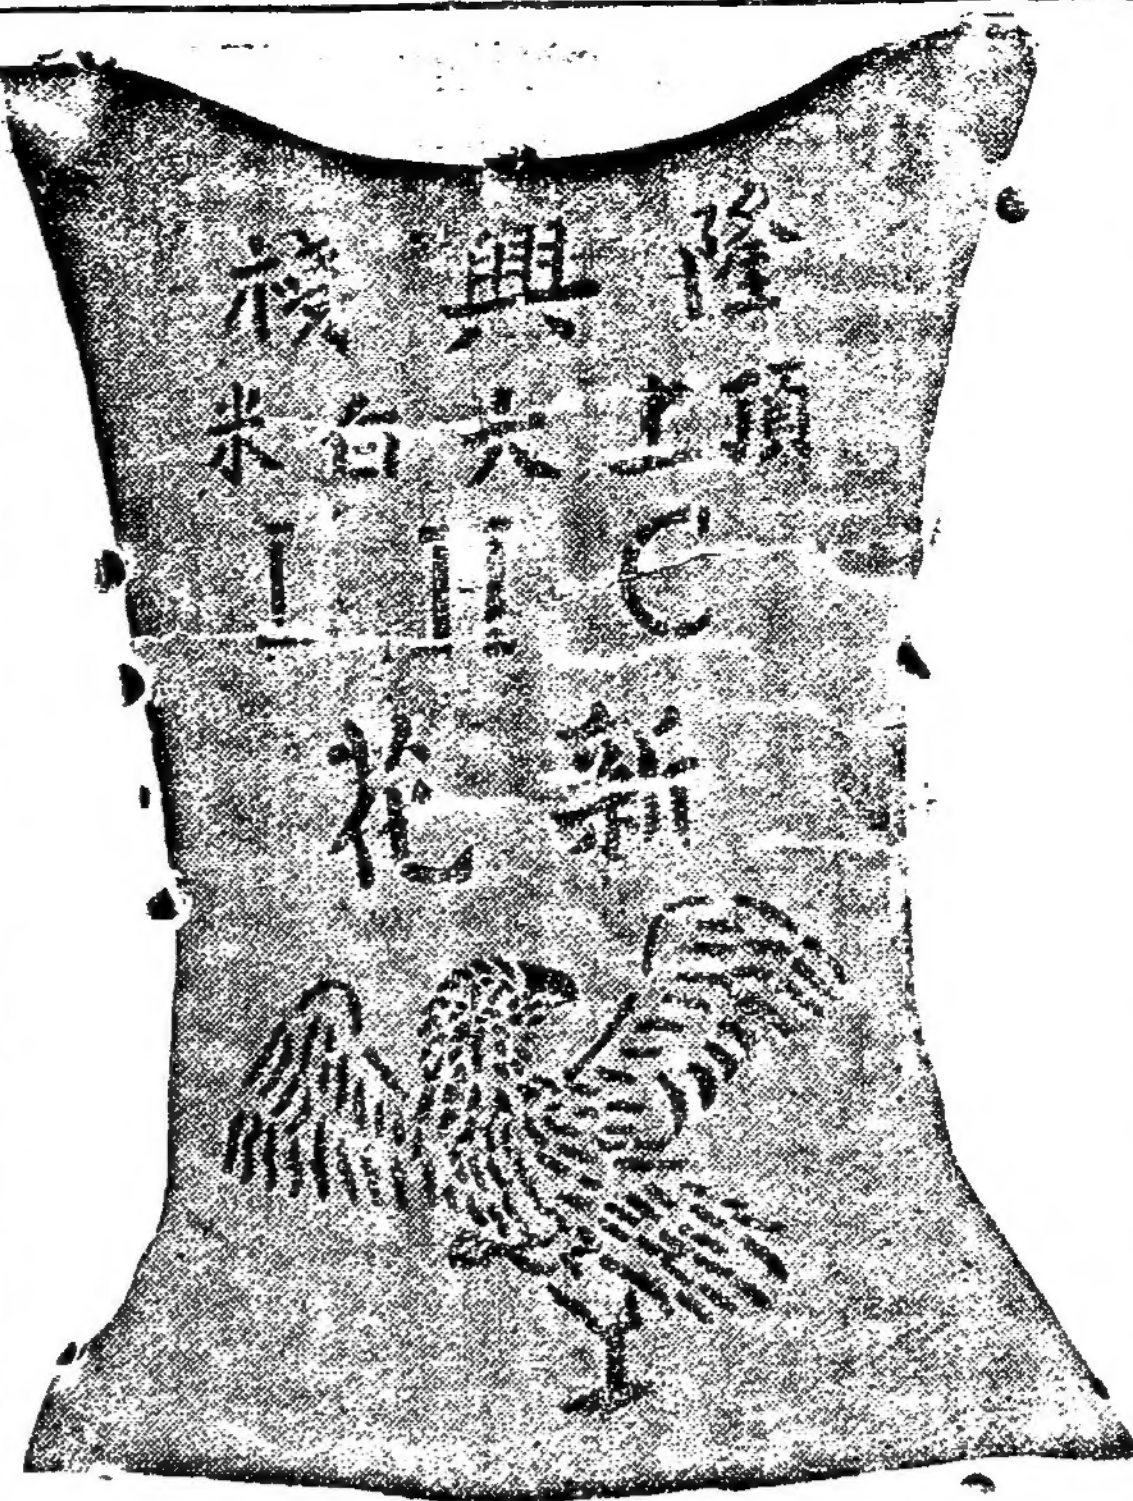 隆興棧
頂上大白米
I H C
新花